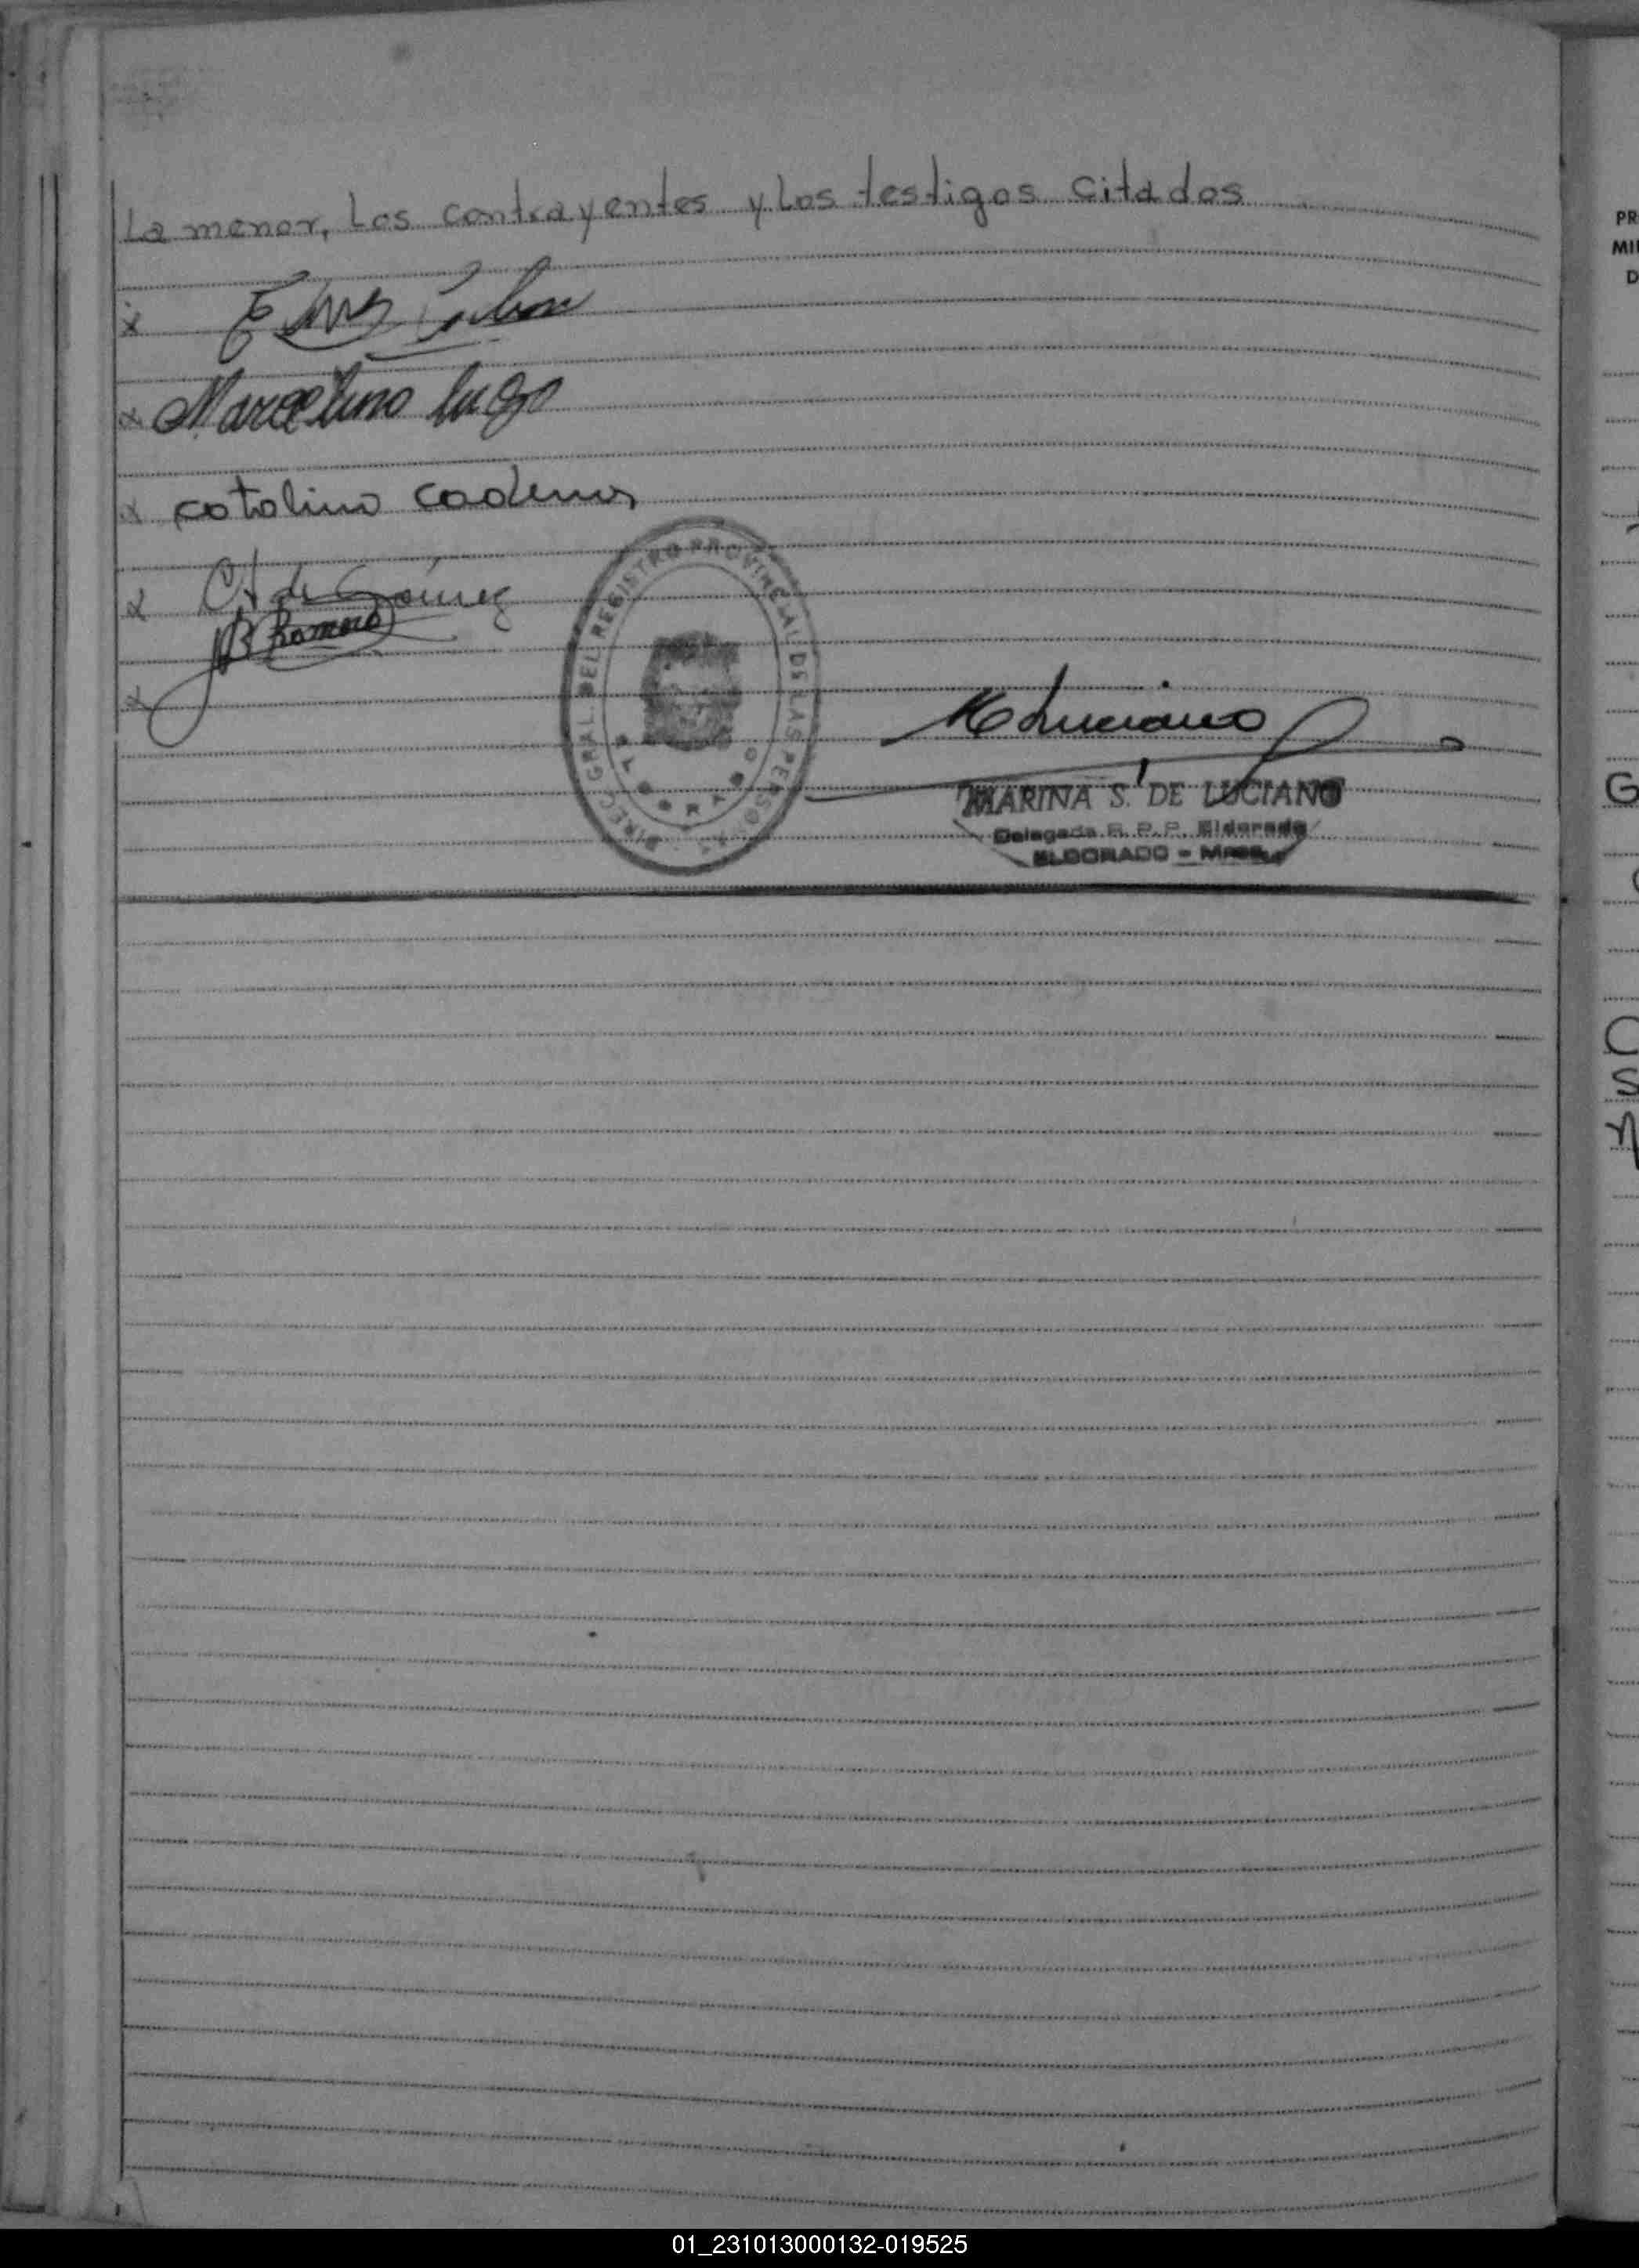 La menor, los contrayentes y los testigos citados
x
x Marcelino Lugo
x catalino
x de Gómez
Romero
x
DIREC. GRAL. DEL REGISTRO PROVINCIAL DE LAS PERSONAS
ELDORADO
M Luciano
MARINA S. DE LUCIANO
Delegada R. P. P. Eldorado
ELDORADO - Mnes.
PR
MI
D
G
C
S
01_231013000132-019525